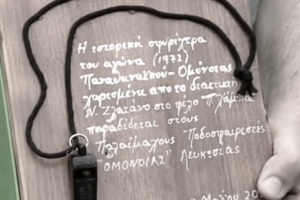 Η ιστορική σφυρίχτρα
του αγώνα (1972)
Παναιγιαλειου - Ομόνοιας
χαρισμένη απο το διαιτητή
Ν. Ζλατάνο στο φίλο Π. Λάμπη
παραδίδεται στους
Παλαίμαχους Ποδοσφαιριστές
"ΟΜΟΝΟΙΑΣ" Λευκωσίας
Μαΐου 20